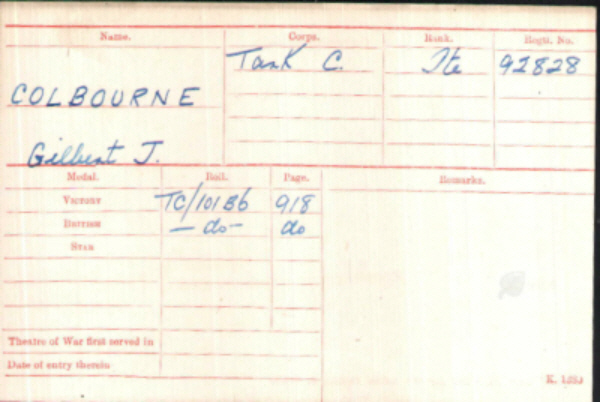 Name. Corps. Rank. Regtl. No.
Tank C. Pte 92828
COLBOURNE
Gilbert J.
Medal. Roll. Page. Remarks.
Victory TC/101B6 918
British —do— do
Star
Theatre of War first served in
Date of entry therein
K. 1380